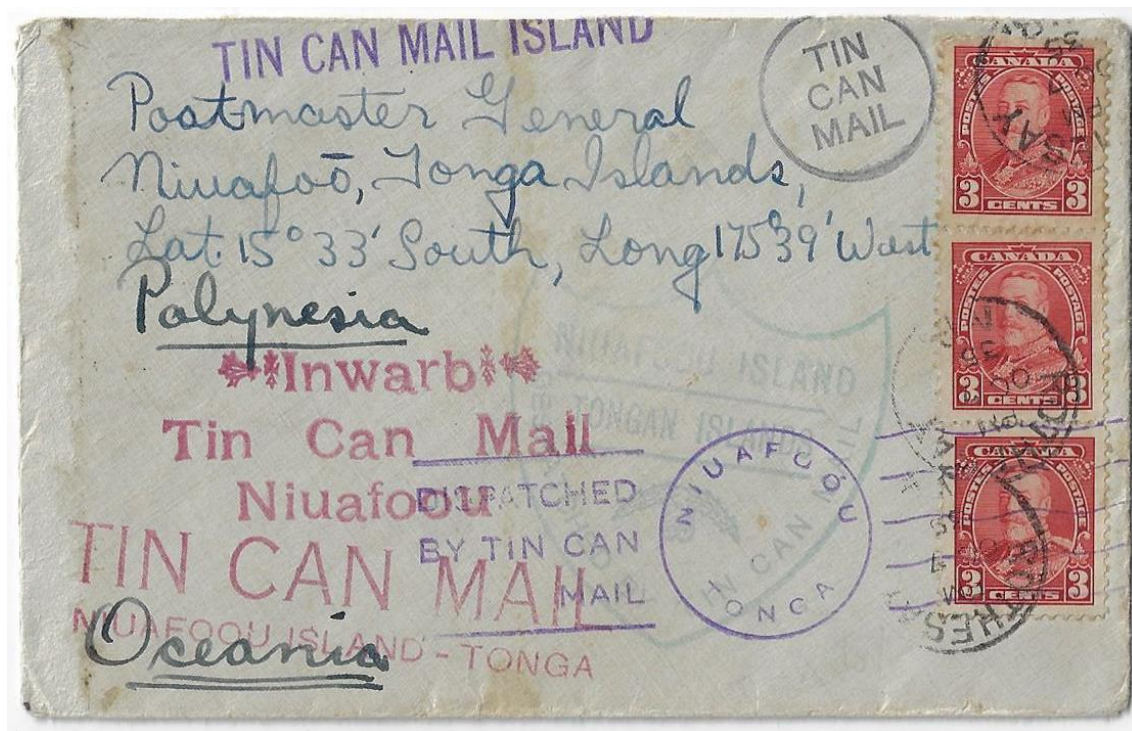 TIN CAN MAIL ISLAND
TIN
CAN
MAIL
Postmaster General
Niuafoō, Tonga Islands,
Lat. 15° 33' South, Long 175°39' West
Polynesia
Inwarb
Tin Can Mail
Niuafoou
TIN CAN MAIL
NIUAFOOU ISLAND - TONGA
Oceania
DISPATCHED
BY TIN CAN
MAIL
NIUAFOOU ISLAND
TONGAN ISLANDS
TIN CAN MAIL
NIUAFOÓU
TONGA
CANADA
POSTES POSTAGE
3 CENTS 3
CANADA
POSTES POSTAGE
3 CENTS 3
CANADA
POSTES POSTAGE
3 CENTS 3